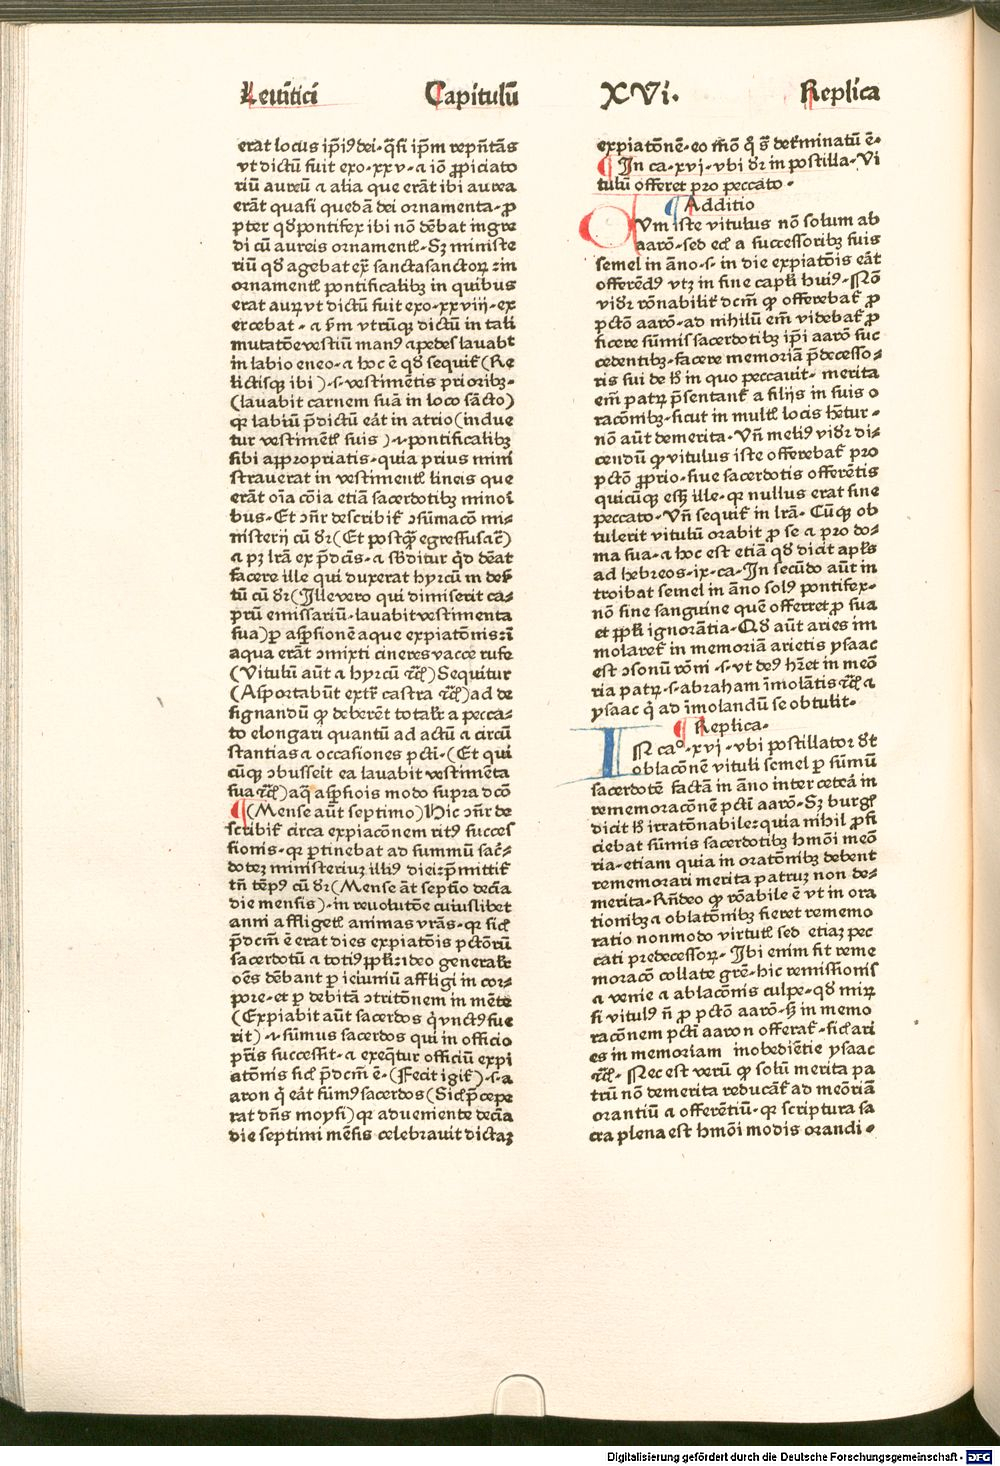 Leuitici Capitulū XVi. Replica
erat locus ip̄i9 dei. q̄si ip̄m rep̄n̄tās
vt dictū fuit exo. xxv. a iō ꝓpiciato
riū aureū a alia que erāt ibi aurea
erāt quasi quedā dei ornamenta. ꝓ
pter qd pontifex ibi nō dēbat ingre
di cū aureis ornamentꝭ. Sꝫ ministe
riū qd agebat ex̄ sanctasanctoꝝ : in
ornamentꝭ pontificalibꝫ in quibus
erat auꝝ vt dictū fuit exo. xxviij. ex
ercebat. a ip̄m vtrūqꝫ dictū in tali
mutatōe vestiū man9 a pedes lauabt
in labio eneo. a hoc ē qd sequit᷑ (Re
lictisqꝫ ibi). s. vestimētis prioribꝫ.
(lauabit carnem suā in loco sācto)
qꝛ labiū p̄dictū eāt in atrio (indue
tur vestimētꝭ suis). i. pontificalibꝫ
sibi appropriatis. quia prius mini
strauerat in vestimentꝭ lineis que
erāt oīa cōia etiā sacerdotibꝫ minoi
bus. Et ꝯn̄r describit᷑ ꝯsūmacō mi-
nisterij cū dr (Et postqꝫ egressus a t̄)
a pꝫ lrā ex p̄dcīs. a sb̄ditur qd dēat
facere ille qui duxerat hyrcū in deser
tū cū dr (Ille vero qui dimiserit ca-
prū emissariū. lauabit vestimenta
sua) ꝑ asꝑsionē aque expiatōnis: i
aqua erāt ꝯmixti cineres vacce rufe
(Vitulū aūt a hyrcū ꝛc̄) Sequitur
(Asportabūt extr̄ castra ꝛc̄) ad de
signandū ꝙ deberēt totalr̄ a pecca-
to elongari quantū ad actū a circū
stantias a occasiones pcti. (Et qui
cūqꝫ ꝯbusseit ea lauabit vestimēta
sua ꝛc̄) aq̄ asꝑsiois modo supra dcō
¶(Mense aūt septimo) Hic ꝯn̄r de
scribit᷑ circa expiacōnem rit9 succes
sionis. qꝛ ꝑtinebat ad summū sac̄-
dotez ministeriuꝫ illi9 diei: p̄mittit᷑
tn̄ tēp9 cū dr (Mense āt septīo decīa
die mensis). in reuolutōe cuiuslibet
anni affligetꝭ animas vrās. qꝛ sicꝫ
p̄dcm̄ ē erat dies expiatōis pctōrū
sacerdotū a toti9 ppl̄i: ideo generalr̄
oēs dēbant ꝑ ieiuniū affligi in cor-
pore. et ꝑ debitā ꝯtritōnem in mēte
(Expiabit aūt sacerdos qi vnct9 fue
rit). i. sūmus sacerdos qui in officio
pr̄is successit. a exeq̄tur officiū expi
atōnis sicꝫ p̄dcm̄ ē. (Fecit igit᷑). s. a
aron qi eāt sūm9 sacerdos (Sicꝫ p̄cepe
rat dn̄s moysi) qꝛ adueniente decīa
die septimi mēsis celebrauit dictaꝫ
expiatōnē. eo mō qi s̄ det̄minatū ē.
¶ In ca. xvj. vbi dr in postilla. Vi
tulū offeret pro peccato.
¶ Additio
QVm iste vitulus nō solum ab
aarō. sed ecꝭ a successoribꝫ suis
semel in āno. s. in die expiatōis eāt
offerēd9 vtꝫ in fine capl̄i hui9. Nō
vidr̄ rōnabilit᷑ dcm̄ ꝙ offerebat᷑ ꝓ
pctō aarō. ad nihilū em̄ videbat᷑ ꝓ
ficere sūmis sacerdotibꝫ ip̄i aarō suc
cedentibꝫ. facere memoriā p̄decesso-
ris sui de h̄ in quo peccauit. merita
em̄ patꝝ p̄sentant᷑ a filijs in suis o
racōnibꝫ. sicut in multꝭ locis hētur.
nō aūt demerita. Vn̄ meli9 vidr̄ di-
cendū ꝙ vitulus iste offerebat᷑ pro
pctō ꝓprio. siue sacerdotis offerētis
quicūqꝫ esꝫ ille. qꝛ nullus erat sine
peccato. Vn̄ sequit᷑ in lrā. Cūqꝫ ob
tulerit vitulū orabit ꝓ se a pro do-
ma sua. a hoc est etiā qd dicit apl̄s
ad hebreos. ix. ca. In secūdo aūt in
troibat semel in āno sol9 pontifex.
nō sine sanguine quē offerret ꝓ sua
et ppl̄i ignorātia. Qd aūt aries im
molaret᷑ in memoriā arietis ysaac
est ꝯsonū rōni. s. vt de9 hꝫet in meō
ria patꝝ. s. abraham īmolātis ꝛc̄ a
ysaac qi ad īmolandū se obtulit.
¶ Replica.
IN cao. xvj. vbi postillator dt
oblacōnē vituli semel ꝑ sūmū
sacerdotē factā in āno inter cetera in
rememoracōnē pcti aarō. Sꝫ burgꝭ
dicit h̄ irratōnabile: quia nihil ꝓfi
ciebat sūmis sacerdotibꝫ hmōi meō
ria. etiam quia in oratōnibꝫ debent
rememorari merita patruꝫ non de-
merita. Rn̄deo ꝙ rōabile ē vt in ora
tionibꝫ a oblatōnibꝫ fieret rememo
ratio nonmodo virtutꝭ sed etiaꝫ pec
cati predecessoꝝ. Ibi enim fit reme
moracō collate gr̄e. hic remissionis
a venie a ablacōnis culpe. qd miꝝ
si vitul9 n̄ ꝓ pctō aarō. sꝫ in memo
racōnem pcti aaron offerat᷑. sicꝫ ari
es in memoriam inobediētie ysaac
ꝛc̄. Nec est verū ꝙ solū merita pa
trū nō demerita reducāt᷑ ad meōriā
orantiū a offerētiū. qꝛ scriptura sa
cra plena est hmōi modis orandi.
Digitalisierung gefördert durch die Deutsche Forschungsgemeinschaft - DFG